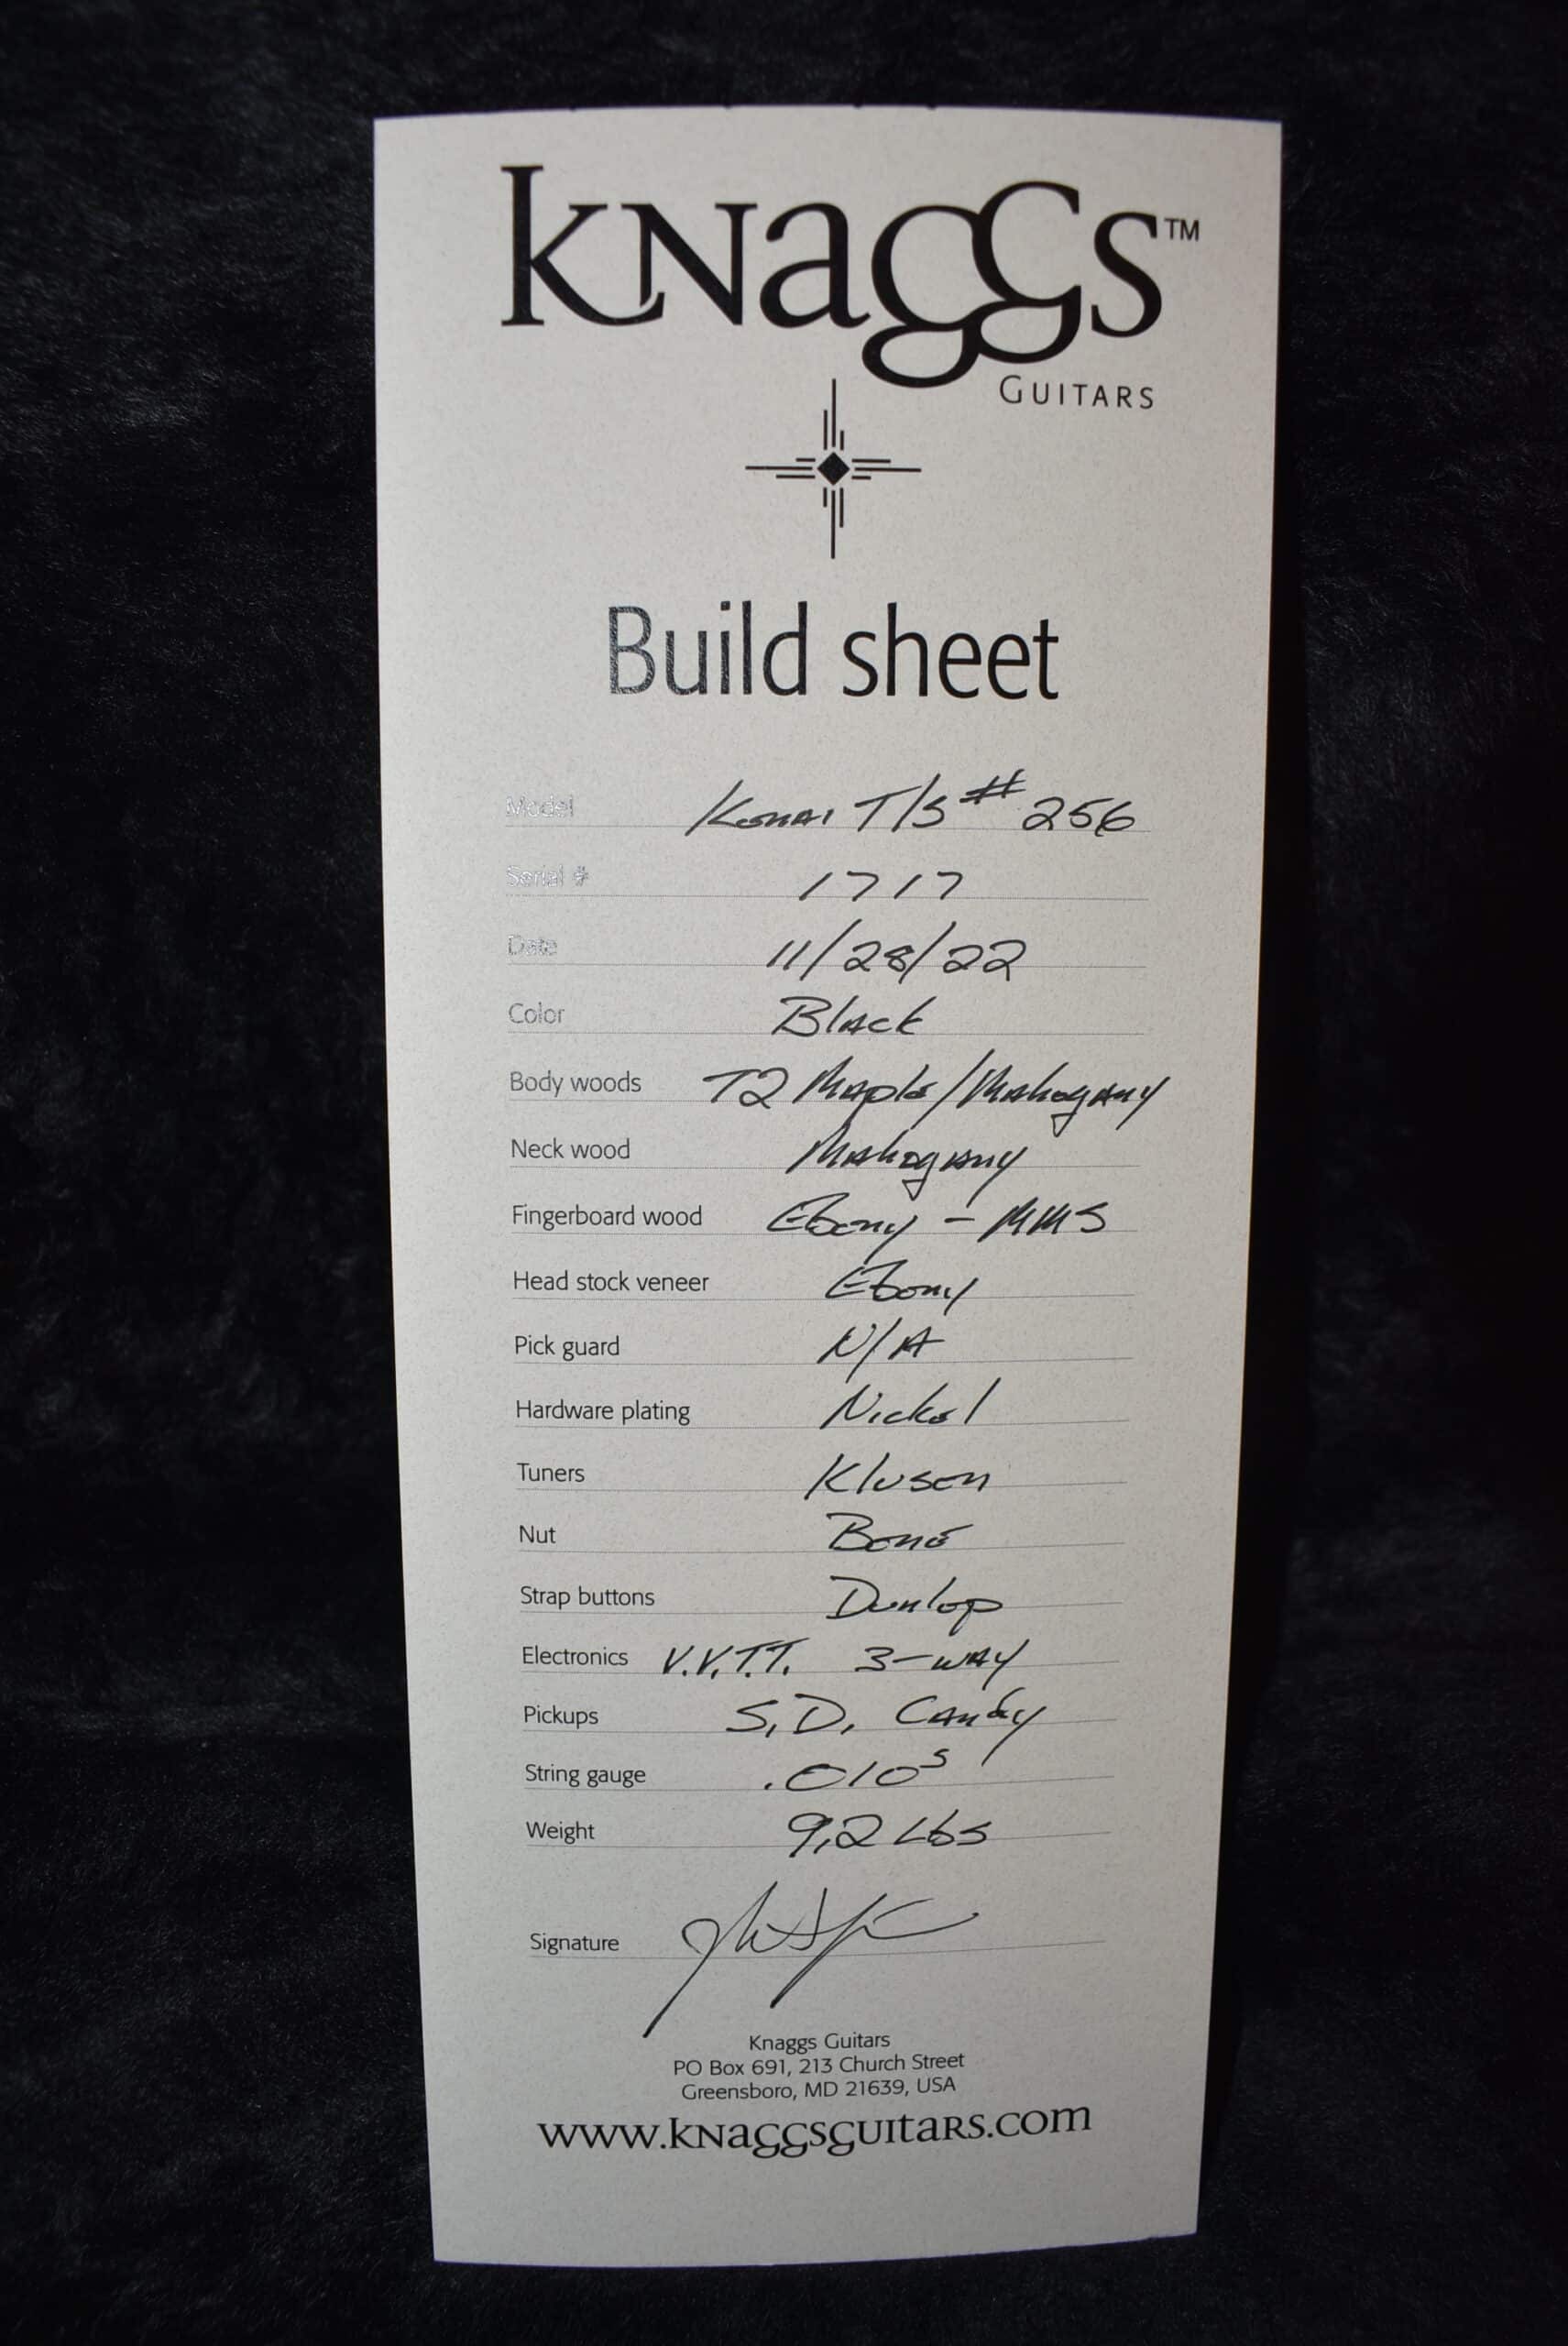 Knaggs™
Guitars
Build sheet
Model Kenai T/S # 256
Serial # 1717
Date 11/28/22
Color Black
Body woods T2 Maple/Mahogany
Neck wood Mahogany
Fingerboard wood Ebony - MMS
Head stock veneer Ebony
Pick guard N/A
Hardware plating Nickel
Tuners Kluson
Nut Bone
Strap buttons Dunlop
Electronics V.V.T.T. 3-way
Pickups S.D. Candy
String gauge .010s
Weight 9.2 Lbs
Signature
Knaggs Guitars
PO Box 691, 213 Church Street
Greensboro, MD 21639, USA
www.knaggsguitars.com